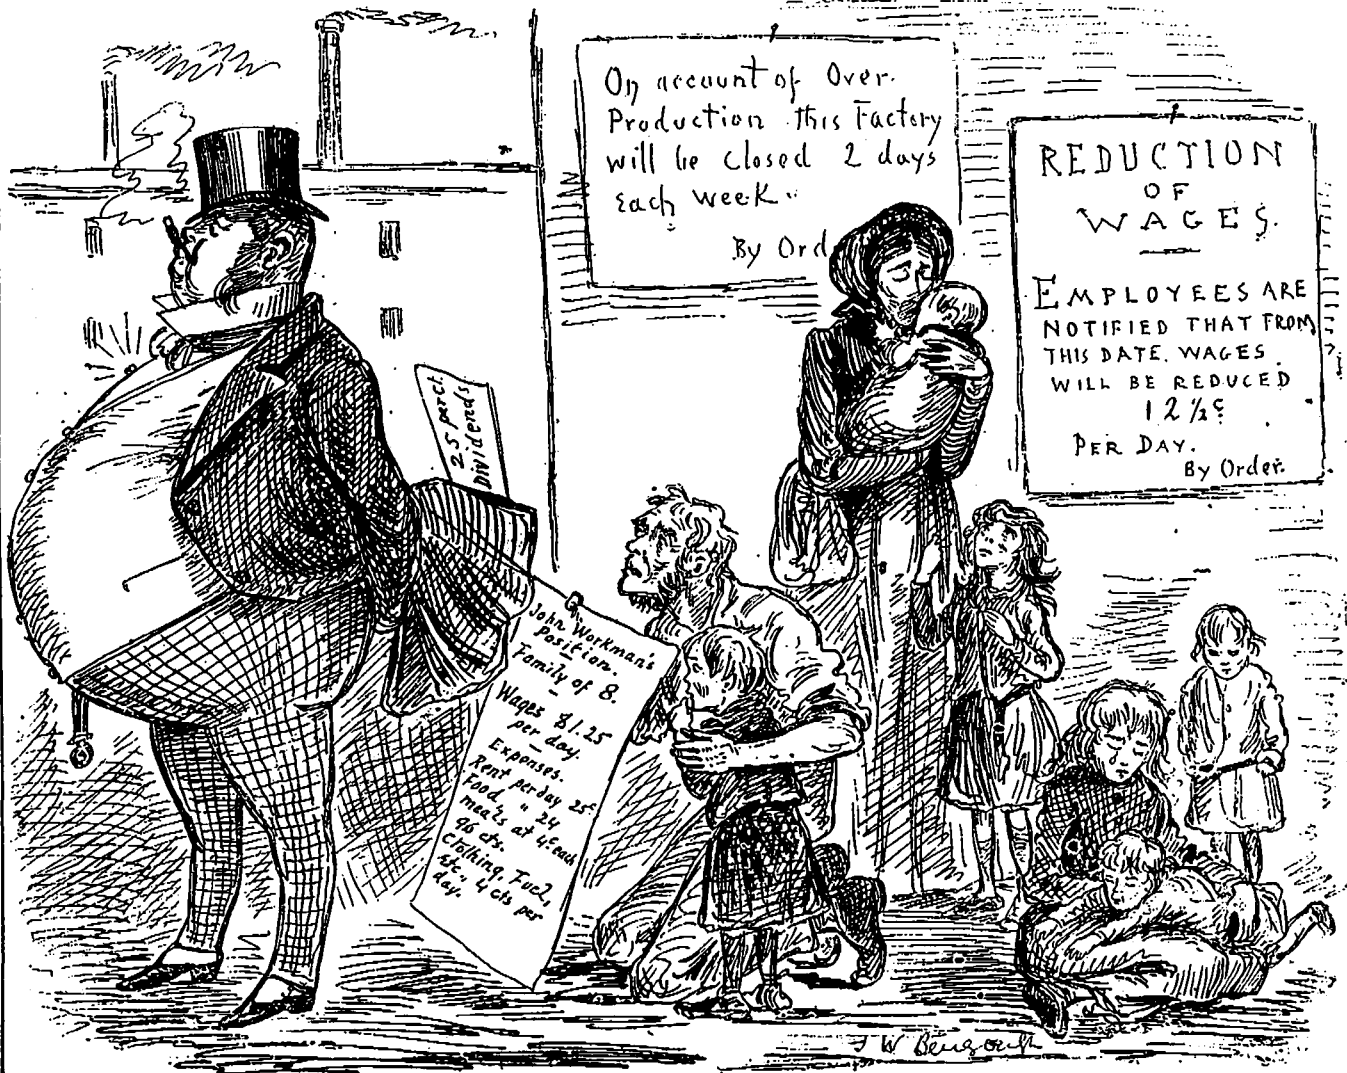 On account of Over-
Production this Factory
will be closed 2 days
Each week.
By Ord
REDUCTION
OF
WAGES.
EMPLOYEES ARE
NOTIFIED THAT FROM
THIS DATE. WAGES
WILL BE REDUCED
12½¢
PER DAY.
By Order.
25 perct.
Dividends
John Workman's
Position.
Family of 8.
Wages $1.25
per day.
Expenses.
Rent per day 25¢
Food, " 24
meals at 4¢ each
96 cts.
Clothing, Fuel,
etc., 4 cts per
day.
J W Bengough